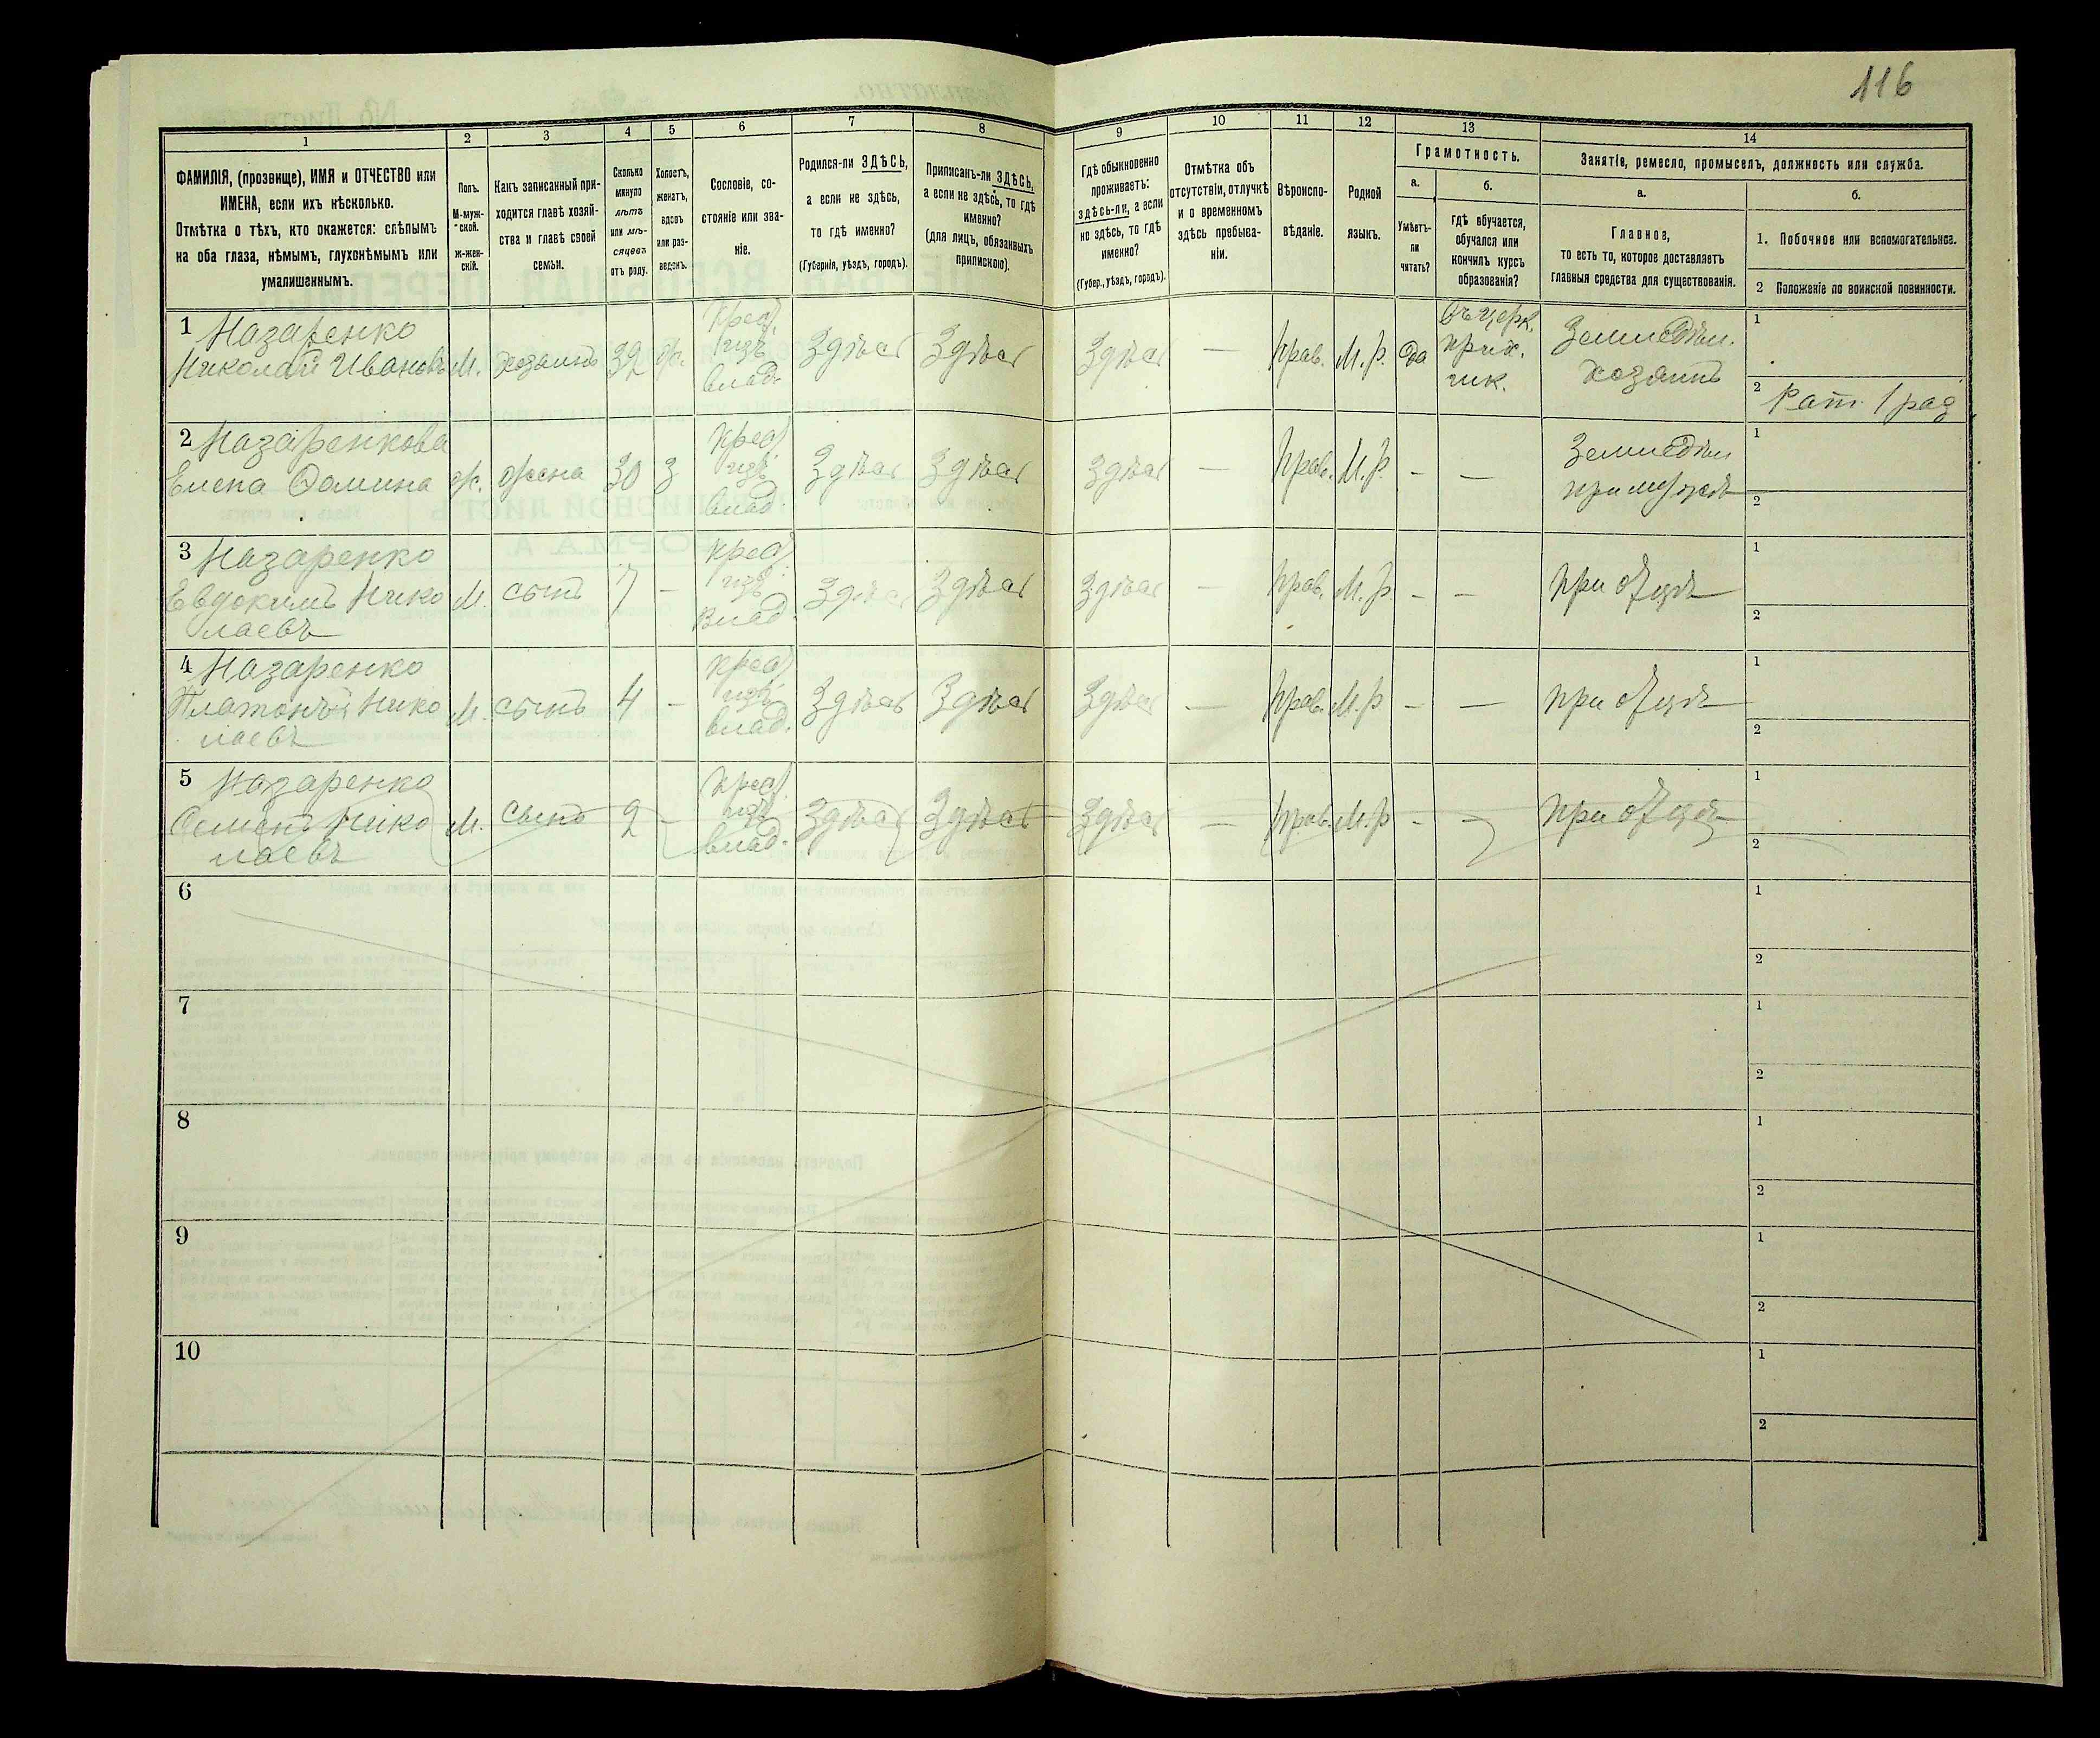 116
1
2
3
4
5
6
7
8
9
10
11
12
13
14
ФАМИЛІЯ, (прозвище), ИМЯ и ОТЧЕСТВО или
ИМЕНА, если ихъ нѣсколько.
Отмѣтка о тѣхъ, кто окажется: слѣпымъ
на оба глаза, нѣмымъ, глухонѣмымъ или
умалишеннымъ.
Полъ.
М-муж-
ской.
ж-жен-
скій.
Какъ записанный при-
ходится главѣ хозяй-
ства и главѣ своей
семьи.
Сколько
минуло
лѣтъ
или мѣ-
сяцевъ
отъ роду.
Холостъ,
женатъ,
вдовъ
или раз-
веденъ.
Сословіе, со-
стояніе или зва-
ніе.
Родился-ли ЗДѢСЬ,
а если не здѣсь,
то гдѣ именно?
(Губернія, уѣздъ, городъ).
Приписанъ-ли ЗДѢСЬ,
а если не здѣсь, то гдѣ
именно?
(для лицъ, обязанныхъ
припискою).
Гдѣ обыкновенно
проживаетъ:
здѣсь-ли, а если
не здѣсь, то гдѣ
именно?
(Губер., уѣздъ, городъ).
Отмѣтка объ
отсутствіи, отлучкѣ
и о временномъ
здѣсь пребыва-
ніи.
Вѣроиспо-
вѣданіе.
Родной
языкъ.
Грамотность.
а.
Умѣетъ-
ли
читать?
б.
гдѣ обучается,
обучался или
кончилъ курсъ
образованія?
Занятіе, ремесло, промыселъ, должность или служба.
а.
Главное,
то есть то, которое доставляетъ
главныя средства для существованія.
б.
1. Побочное или вспомогательное.
2 Положеніе по воинской повинности.
1 Назаренко
Николай Ивановъ
М.
хозяинъ
32
ж.
Крес.
изъ
влад.
Здѣсь
Здѣсь
Здѣсь
—
Прав.
М.р.
да
въ церк.
прих.
шк.
Земледѣл.
хозяинъ
1
2 Рат. 1 раз
2 Назаренкова
Елена Фомина
ж.
жена
30
з
Крес.
изъ
влад.
Здѣсь
Здѣсь
Здѣсь
—
Прав.
М.р.
-
—
Земледѣл
при мужѣ
1
2
3 Назаренко
Евдокимъ Нико
лаевъ
М.
сынъ
7
-
Крес.
изъ
влад.
Здѣсь
Здѣсь
Здѣсь
—
Прав.
М.р
-
-
при отцѣ
1
2
4 Назаренко
Платонъ Нико
лаевъ
М.
сынъ
4
-
Крес.
изъ
влад.
Здѣсь
Здѣсь
Здѣсь
—
Прав.
М.р
-
—
при отцѣ
1
2
5 Назаренко
Семенъ Нико
лаевъ
М.
сынъ
2
-
Крес.
изъ
влад.
Здѣсь
Здѣсь
Здѣсь
—
Прав.
М.р
-
-
при отцѣ
1
2
6
1
2
7
1
2
8
1
2
9
1
2
10
1
2